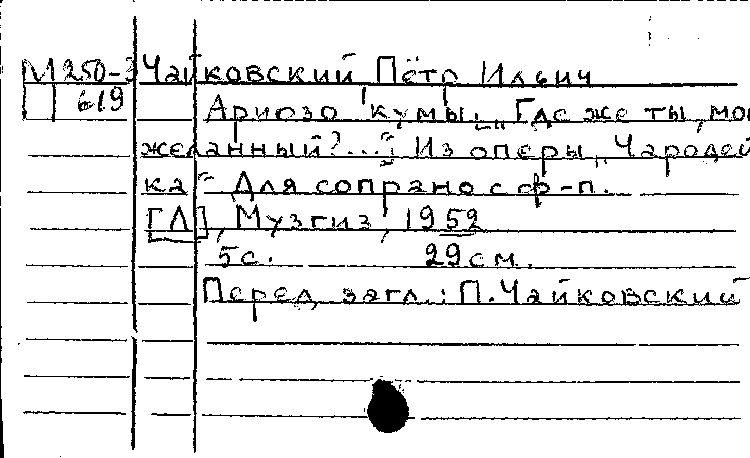 М 250-3 Чайковский Пётр Ильич
619 Ариозо кумы: „Где же ты, мой
желанный?..." Из оперы „Чародей
ка" Для сопрано с ф-п.
[Л], Музгиз, 1952
5с. 29см.
Перед загл.: П. Чайковский